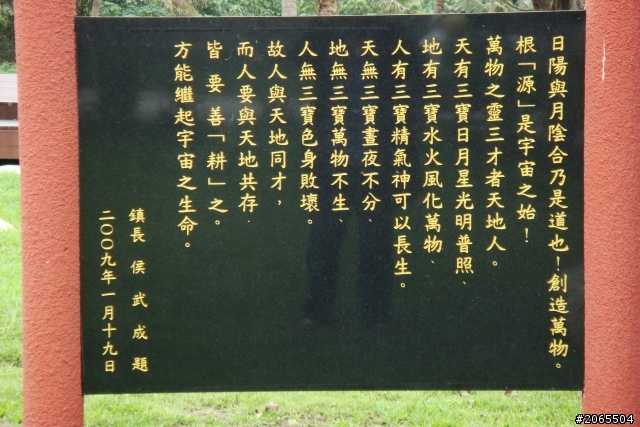 日陽與月陰合乃是道也！創造萬物。
根「源」是宇宙之始！
萬物之靈三才者天地人。
天有三寶日月星光明普照、
地有三寶水火風化萬物、
人有三寶精氣神可以長生。
天無三寶晝夜不分、
地無三寶萬物不生、
人無三寶色身敗壞。
故人與天地同才，
而人要與天地共存．
皆要善「耕」之。
方能繼起宇宙之生命。
鎮長 侯武成 題
二〇〇九年一月十九日
#2065504